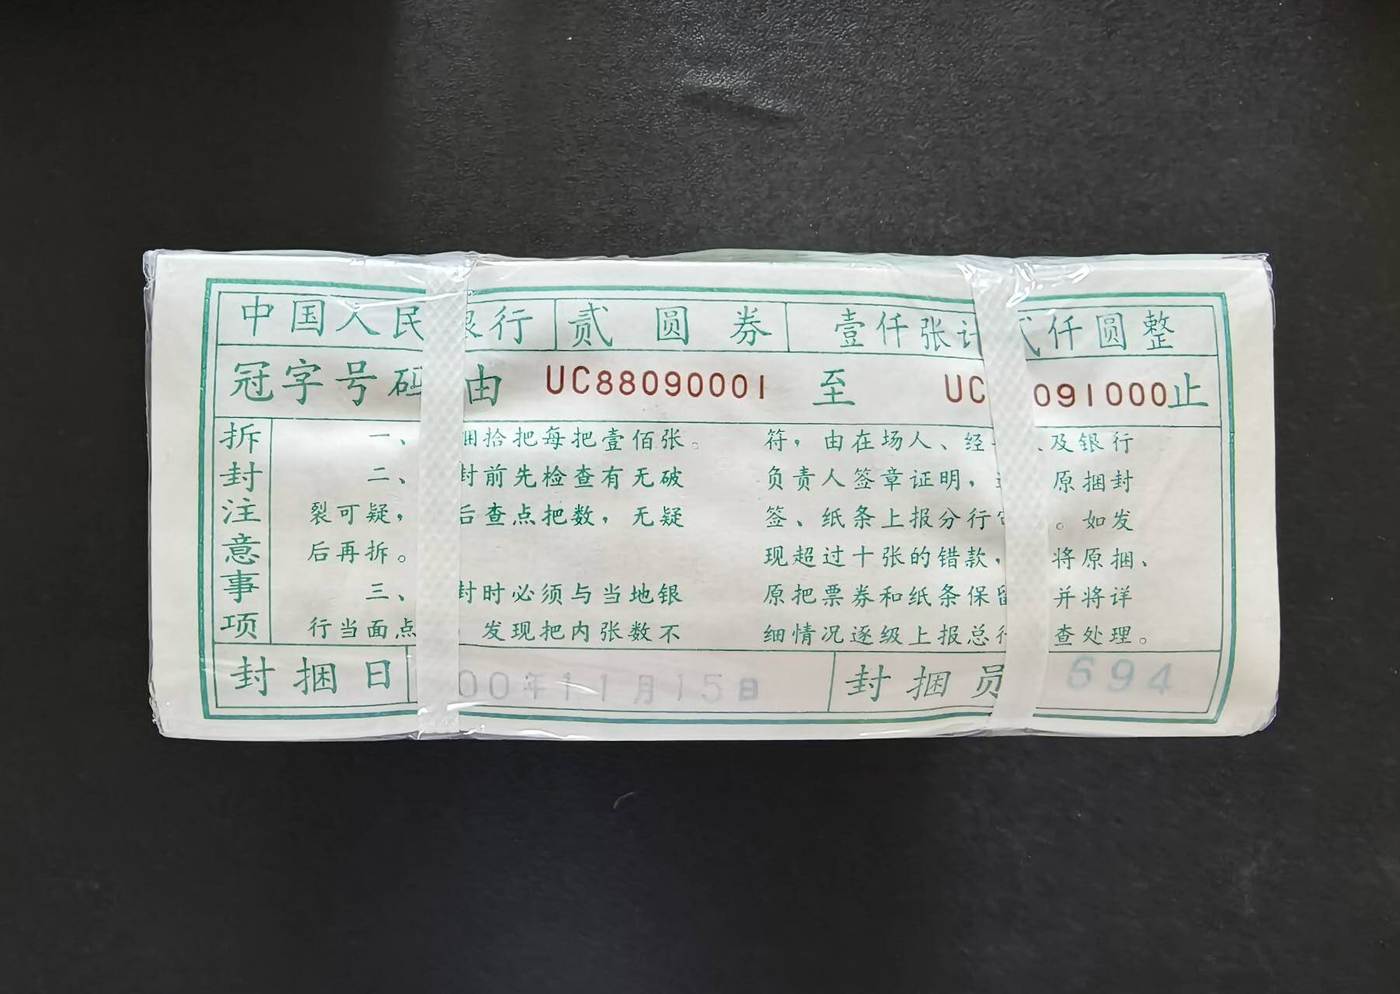 中国人民银行 贰圆券 壹仟张计贰仟圆整
冠字号码由 UC88090001 至 UC 091000止
拆封注意事项
一、 捆拾把每把壹佰张。
二、 封前先检查有无破
裂可疑， 后查点把数，无疑
后再拆。
三、 封时必须与当地银
行当面点 发现把内张数不
符，由在场人、经 及银行
负责人签章证明， 原捆封
签、纸条上报分行 。如发
现超过十张的错款， 将原捆、
原把票券和纸条保留 并将详
细情况逐级上报总行 查处理。
封捆日 00年11月15日 封捆员 694